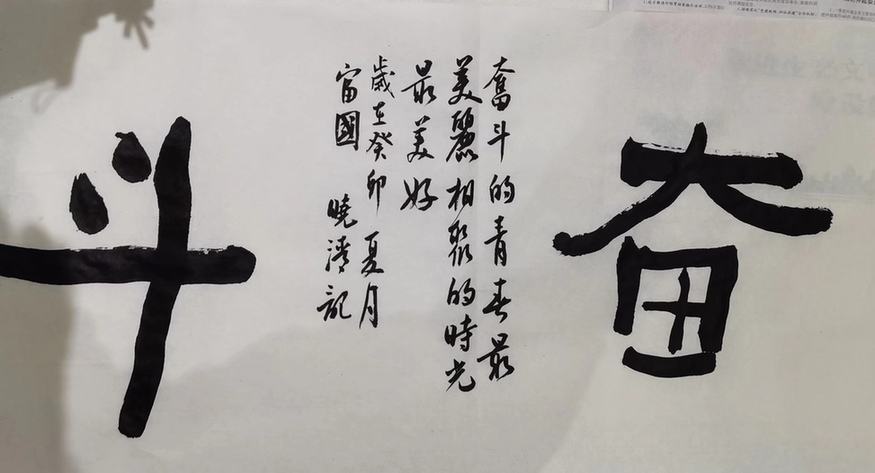 奋
奮斗的青春最
美麗相聚的時光
最美好
歲在癸卯夏月
富國 曉清記
斗